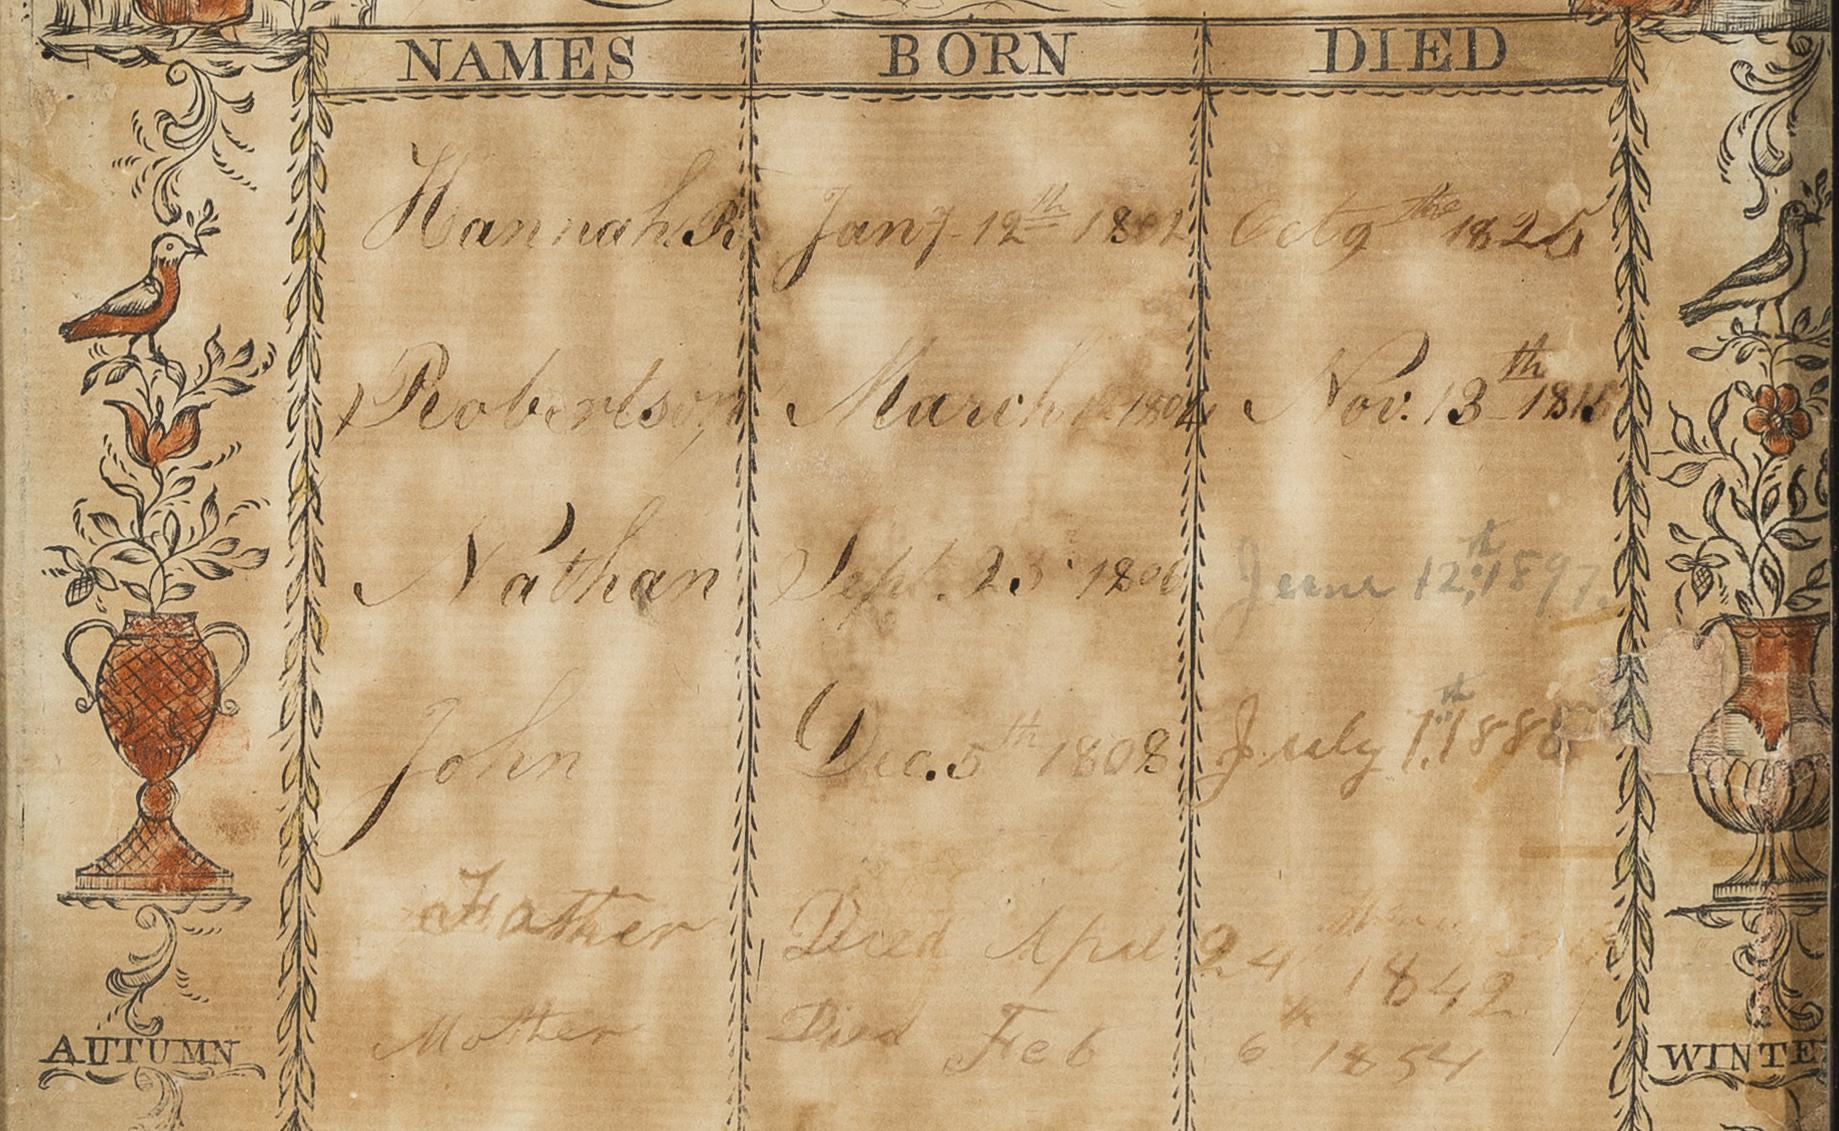 NAMES BORN DIED
Hannah R. Jany. 12th 1802 Oct 9 the 182
Robertson March 1804 Nov. 13th 181
Nathan Sept. 23 1806 June 12th, 1897.
John Dec. 5th 1808 July 1st 1888.
Father Died April 24 1842
Mother Died Feb 6th 1854
AUTUMN WINTE